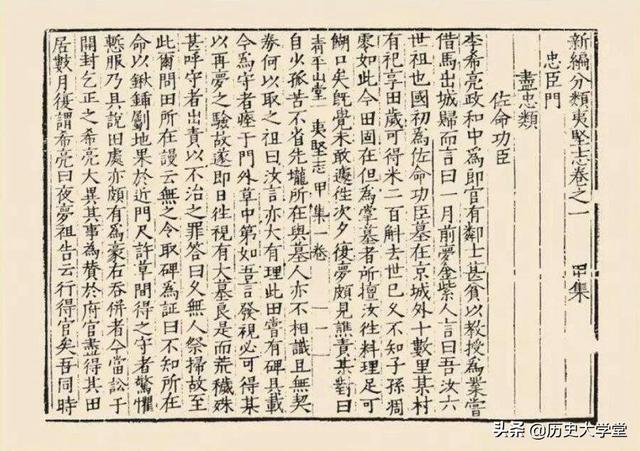 新編分類夷堅志卷之一　甲集
忠臣門
盡忠類
佐命功臣
李希亮政和中為郎官有鄰士甚貧以教授為業嘗
借馬出城歸而言曰一月前夢金紫人言曰吾汝六
世祖也國初為佐命功臣墓在京城外十數里某村
有祀享田歲可得米二百斛去世已久不知子孫凋
零如此今田固在但為掌墓者所擅汝往料理足可
餬口矣既覺未敢遽往次夕復夢頗見譙責某對曰
自少孤苦不省先壠所在與墓人亦不相識且無契
清平山堂　夷堅志　甲集一卷　一
劵何以取之祖曰汝言亦大有理此田嘗有碑具載
今為守者瘞于門外草中第如吾言發視必可得某
以再夢之驗故遂即日往視有大墓良是而荒穢殊
甚呼守者出責以不治之罪答曰久無人祭掃故至
此爾問田所在謾云無之令取碑為証曰不知所在
命以鍬鋪劚地果於近門尺許草間得之守者驚懼
慙服乃具說田裏亦頗有為豪右吞併者今當訟于
開封乞正之希亮大異其事為賛於府官盡得其田
居數月復謂希亮曰夜夢祖告云行得官矣吾同時
头条 @历史大学堂